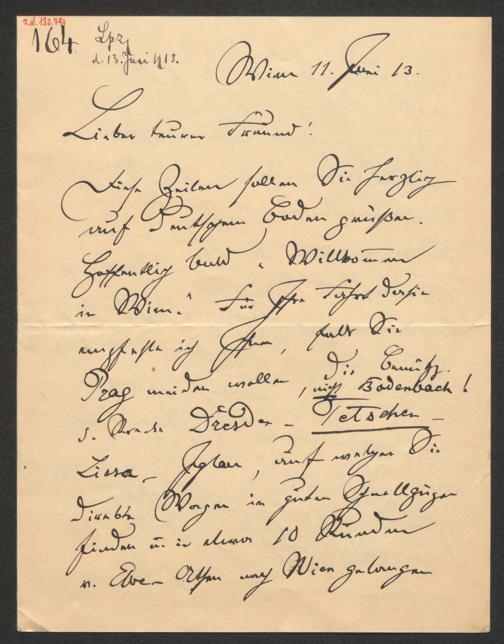 I.N. 132.740
164.
Lpz
d. 13. Juni 1913.
Wien 11. Juni 13.
Lieber teurer Freund!
Diese Zeilen sollen Sie herzlich
auf deutschem Boden grüßen.
Hoffentlich bald „Willkommen
in Wien." Für Ihre Fahrt
empfehle ich Ihnen, falls Sie
Prag meiden wollen, die
nicht Bodenbach!
d. Dresden – Tetschen –
Lissa – Iglau, auf welcher Sie
direkte Wagen in guten Schnellzügen
finden u. in etwa 10 Stunden
n. Wien gelangen